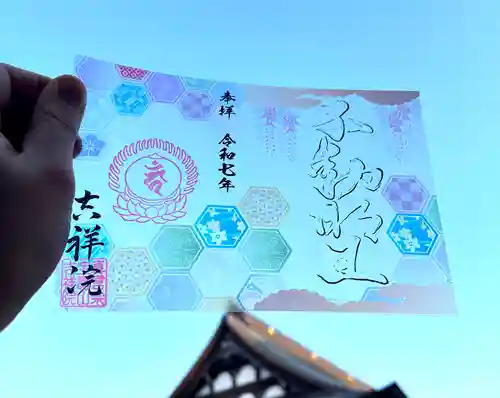 奉拝
令和七年
不動明王
吉祥院